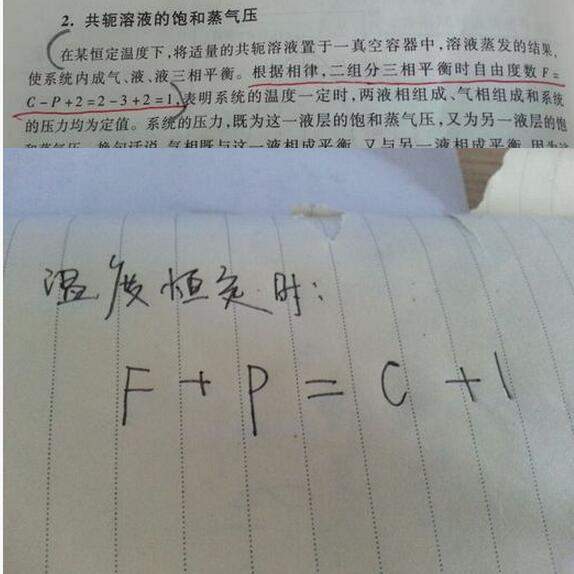 2. 共轭溶液的饱和蒸气压
在某恒定温度下,将适量的共轭溶液置于一真空容器中,溶液蒸发的结果,
使系统内成气、液、液三相平衡。根据相律,二组分三相平衡时自由度数 F=
C-P+2=2-3+2=1,表明系统的温度一定时,两液相组成、气相组成和系统
的压力均为定值。系统的压力,既为这一液层的饱和蒸气压,又为另一液层的饱
和蒸气压。换句话说,气相既与这一液相成平衡,又与另一液相成平衡,因为这
温度恒定时:
F+P=C+1